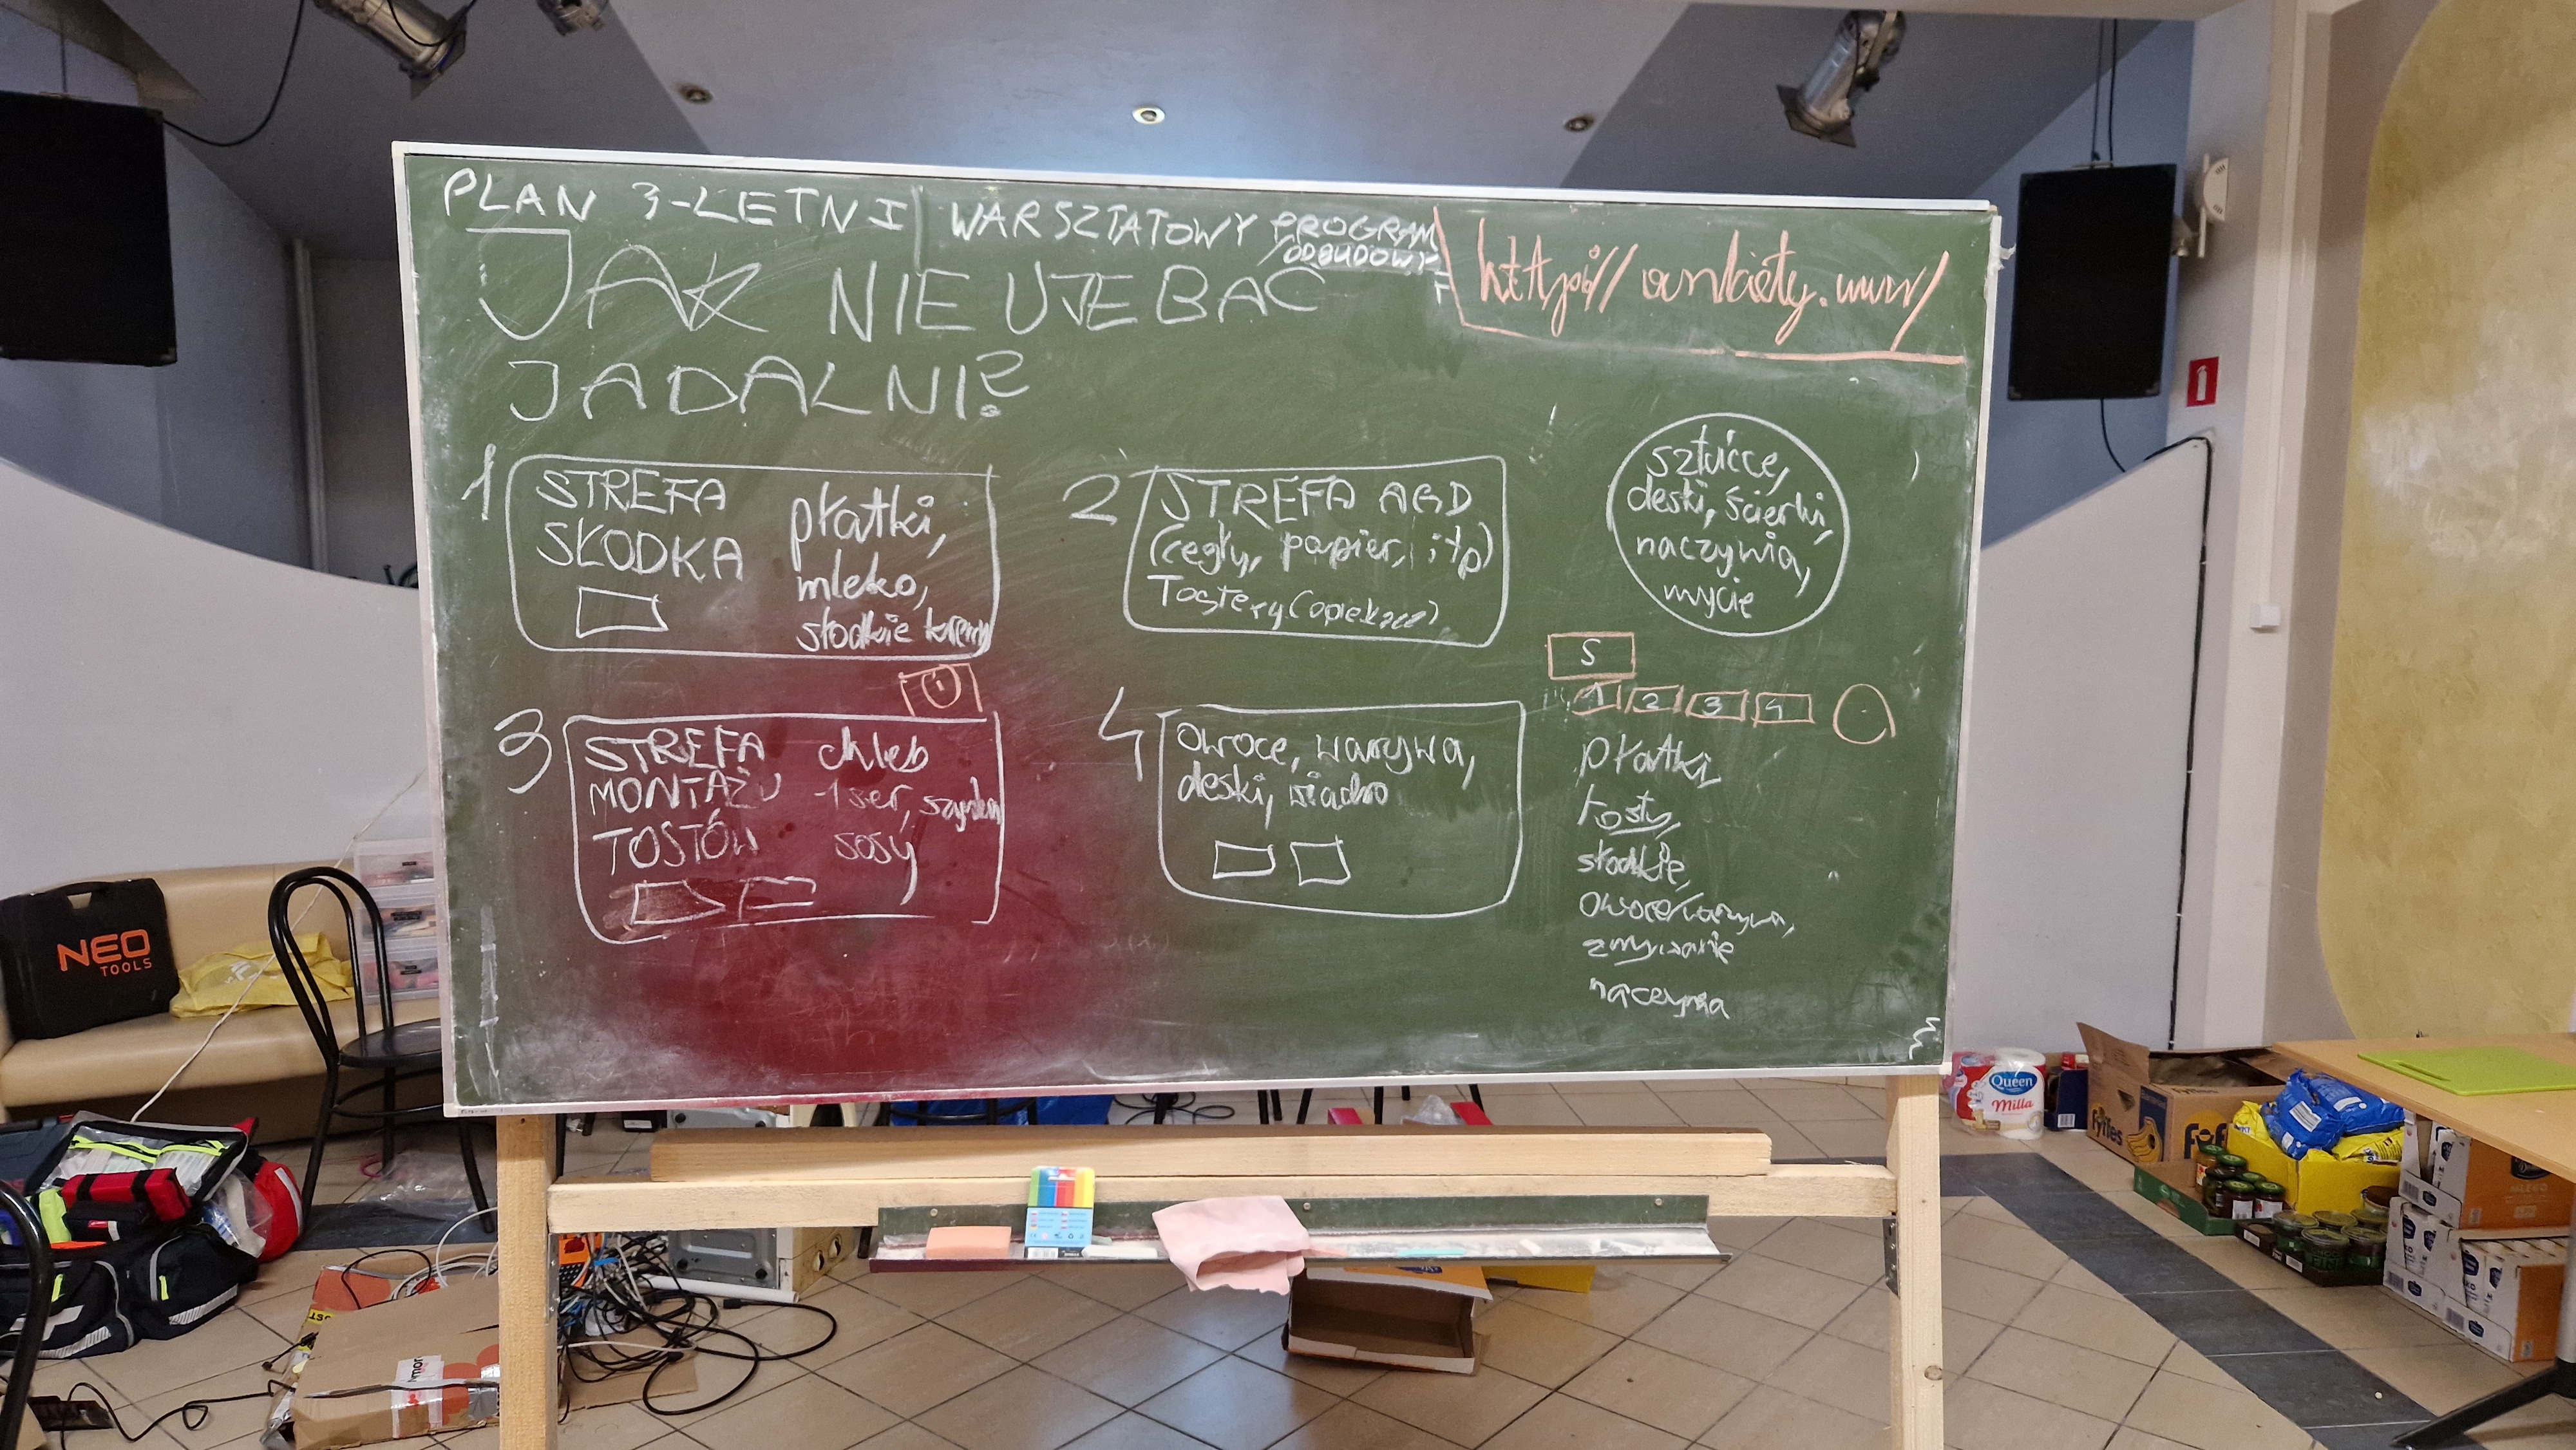 PLAN 3-LETNI WARSZTATOWY PROGRAM
ODBUDOWY
JAK NIE UJEBAĆ
JADALNI?
ankiety.www/
1
STREFA
SŁODKA
płatki,
mleko,
słodkie kremy
2
STREFA AGD
(cegły, papier, itp)
Tostery (opiekacz)
sztućce,
deski, ścierki,
naczynia,
mycie
3
STREFA
MONTAŻU
TOSTÓW
chleb
ser, szynka
sosy
4
owoce, warzywa,
deski, wiadro
5
1 2 3 4
płatki,
tosty,
słodkie,
owoce/warzywa,
zmywanie
naczynia
NEO
TOOLS
Queen
Milla
fyffes